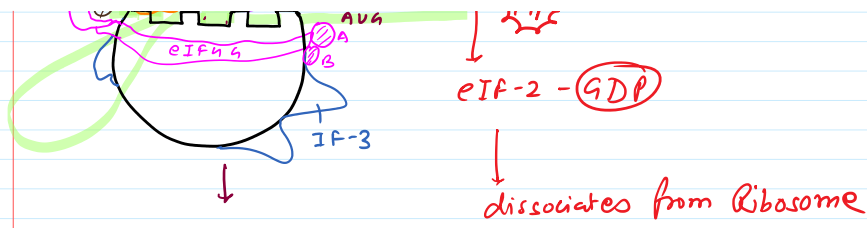 AUG
A
eIF4G
B
eIF-2 - GDP
IF-3
dissociates from Ribosome